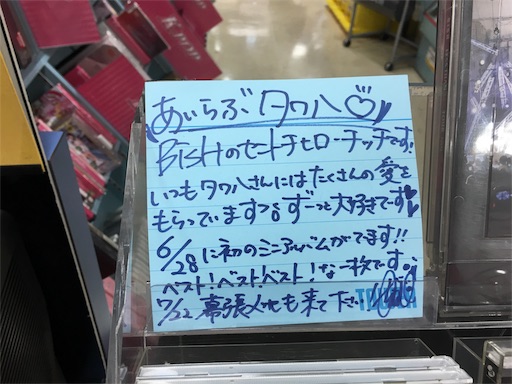 K-POP
あいらぶタワハ♡
BiSHのセントチヒロ・チッチです!
いつもタワハさんにはたくさんの愛を
もらっています ずーっと大好きです
6/28に初のミニアルバムがでます!!
ベスト!ベスト!ベスト!な一枚です。
7/22 幕張 も来て下さい